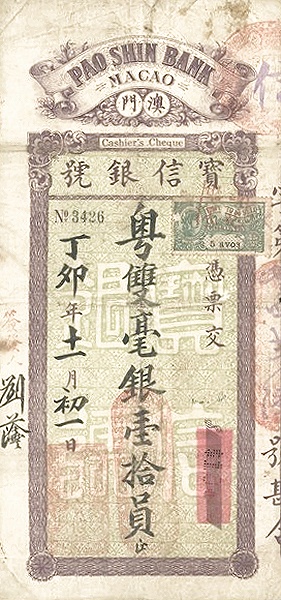 PAO SHIN BANK
MACAO
門澳
Cashier's Cheque
號銀信寶
№ 3426
5 AVOS
憑票交
粵雙毫銀壹拾員
丁卯年十一月初一日
劉蔭